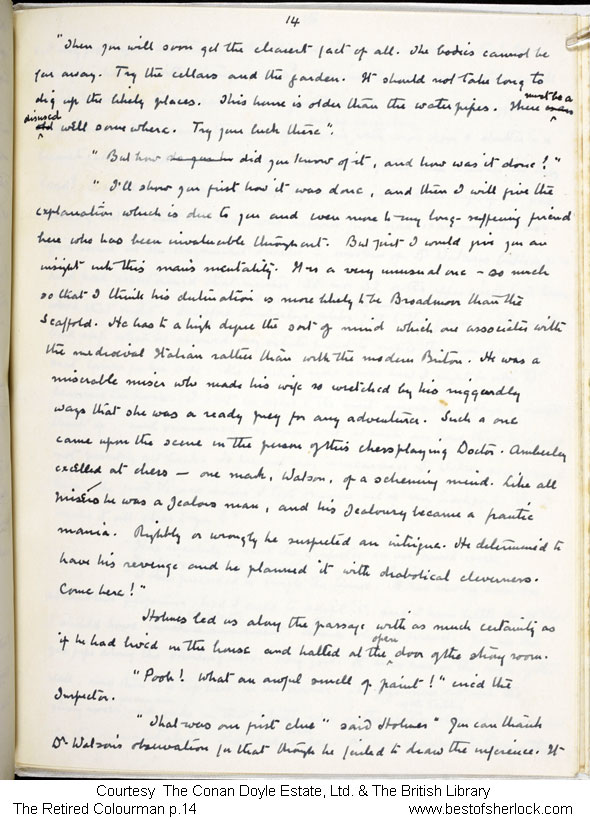 14
"Then you will soon get the clearest fact of all. The bodies cannot be
far away. Try the cellars and the garden. It should not take long to
dig up the likely places. This house is older than the waterpipes. There must be a
disused well somewhere. Try your luck there".
"But how did you know of it, and how was it done?"
"I'll show you first how it was done, and then I will give the
explanation which is due to you and even more to my long-suffering friend
here who has been invaluable throughout. But first I would give you an
insight into this man's mentality. It is a very unusual one – so much
so that I think his destination is more likely to be Broadmoor than the
Scaffold. He has to a high degree the sort of mind which one associates with
the mediaeval Italian rather than with the modern Briton. He was a
miserable miser who made his wife so wretched by his niggardly
ways that she was a ready prey for any adventurer. Such a one
came upon the scene in the person of this chessplaying Doctor. Amberley
excelled at chess – one mark, Watson, of a scheming mind. Like all
misers he was a jealous man, and his jealousy became a frantic
mania. Rightly or wrongly he suspected an intrigue. He determined to
have his revenge and he planned it with diabolical cleverness.
Come here!"
Holmes led us along the passage with as much certainty as
if he had lived in the house and halted at the open door of the strong room.
"Pooh! What an awful smell of paint!" cried the
Inspector.
"That was our first clue" said Holmes "You can thank
Dr Watson's observation for that though he failed to draw the inference. It
Courtesy The Conan Doyle Estate, Ltd. & The British Library
The Retired Colourman p.14 www.bestofsherlock.com